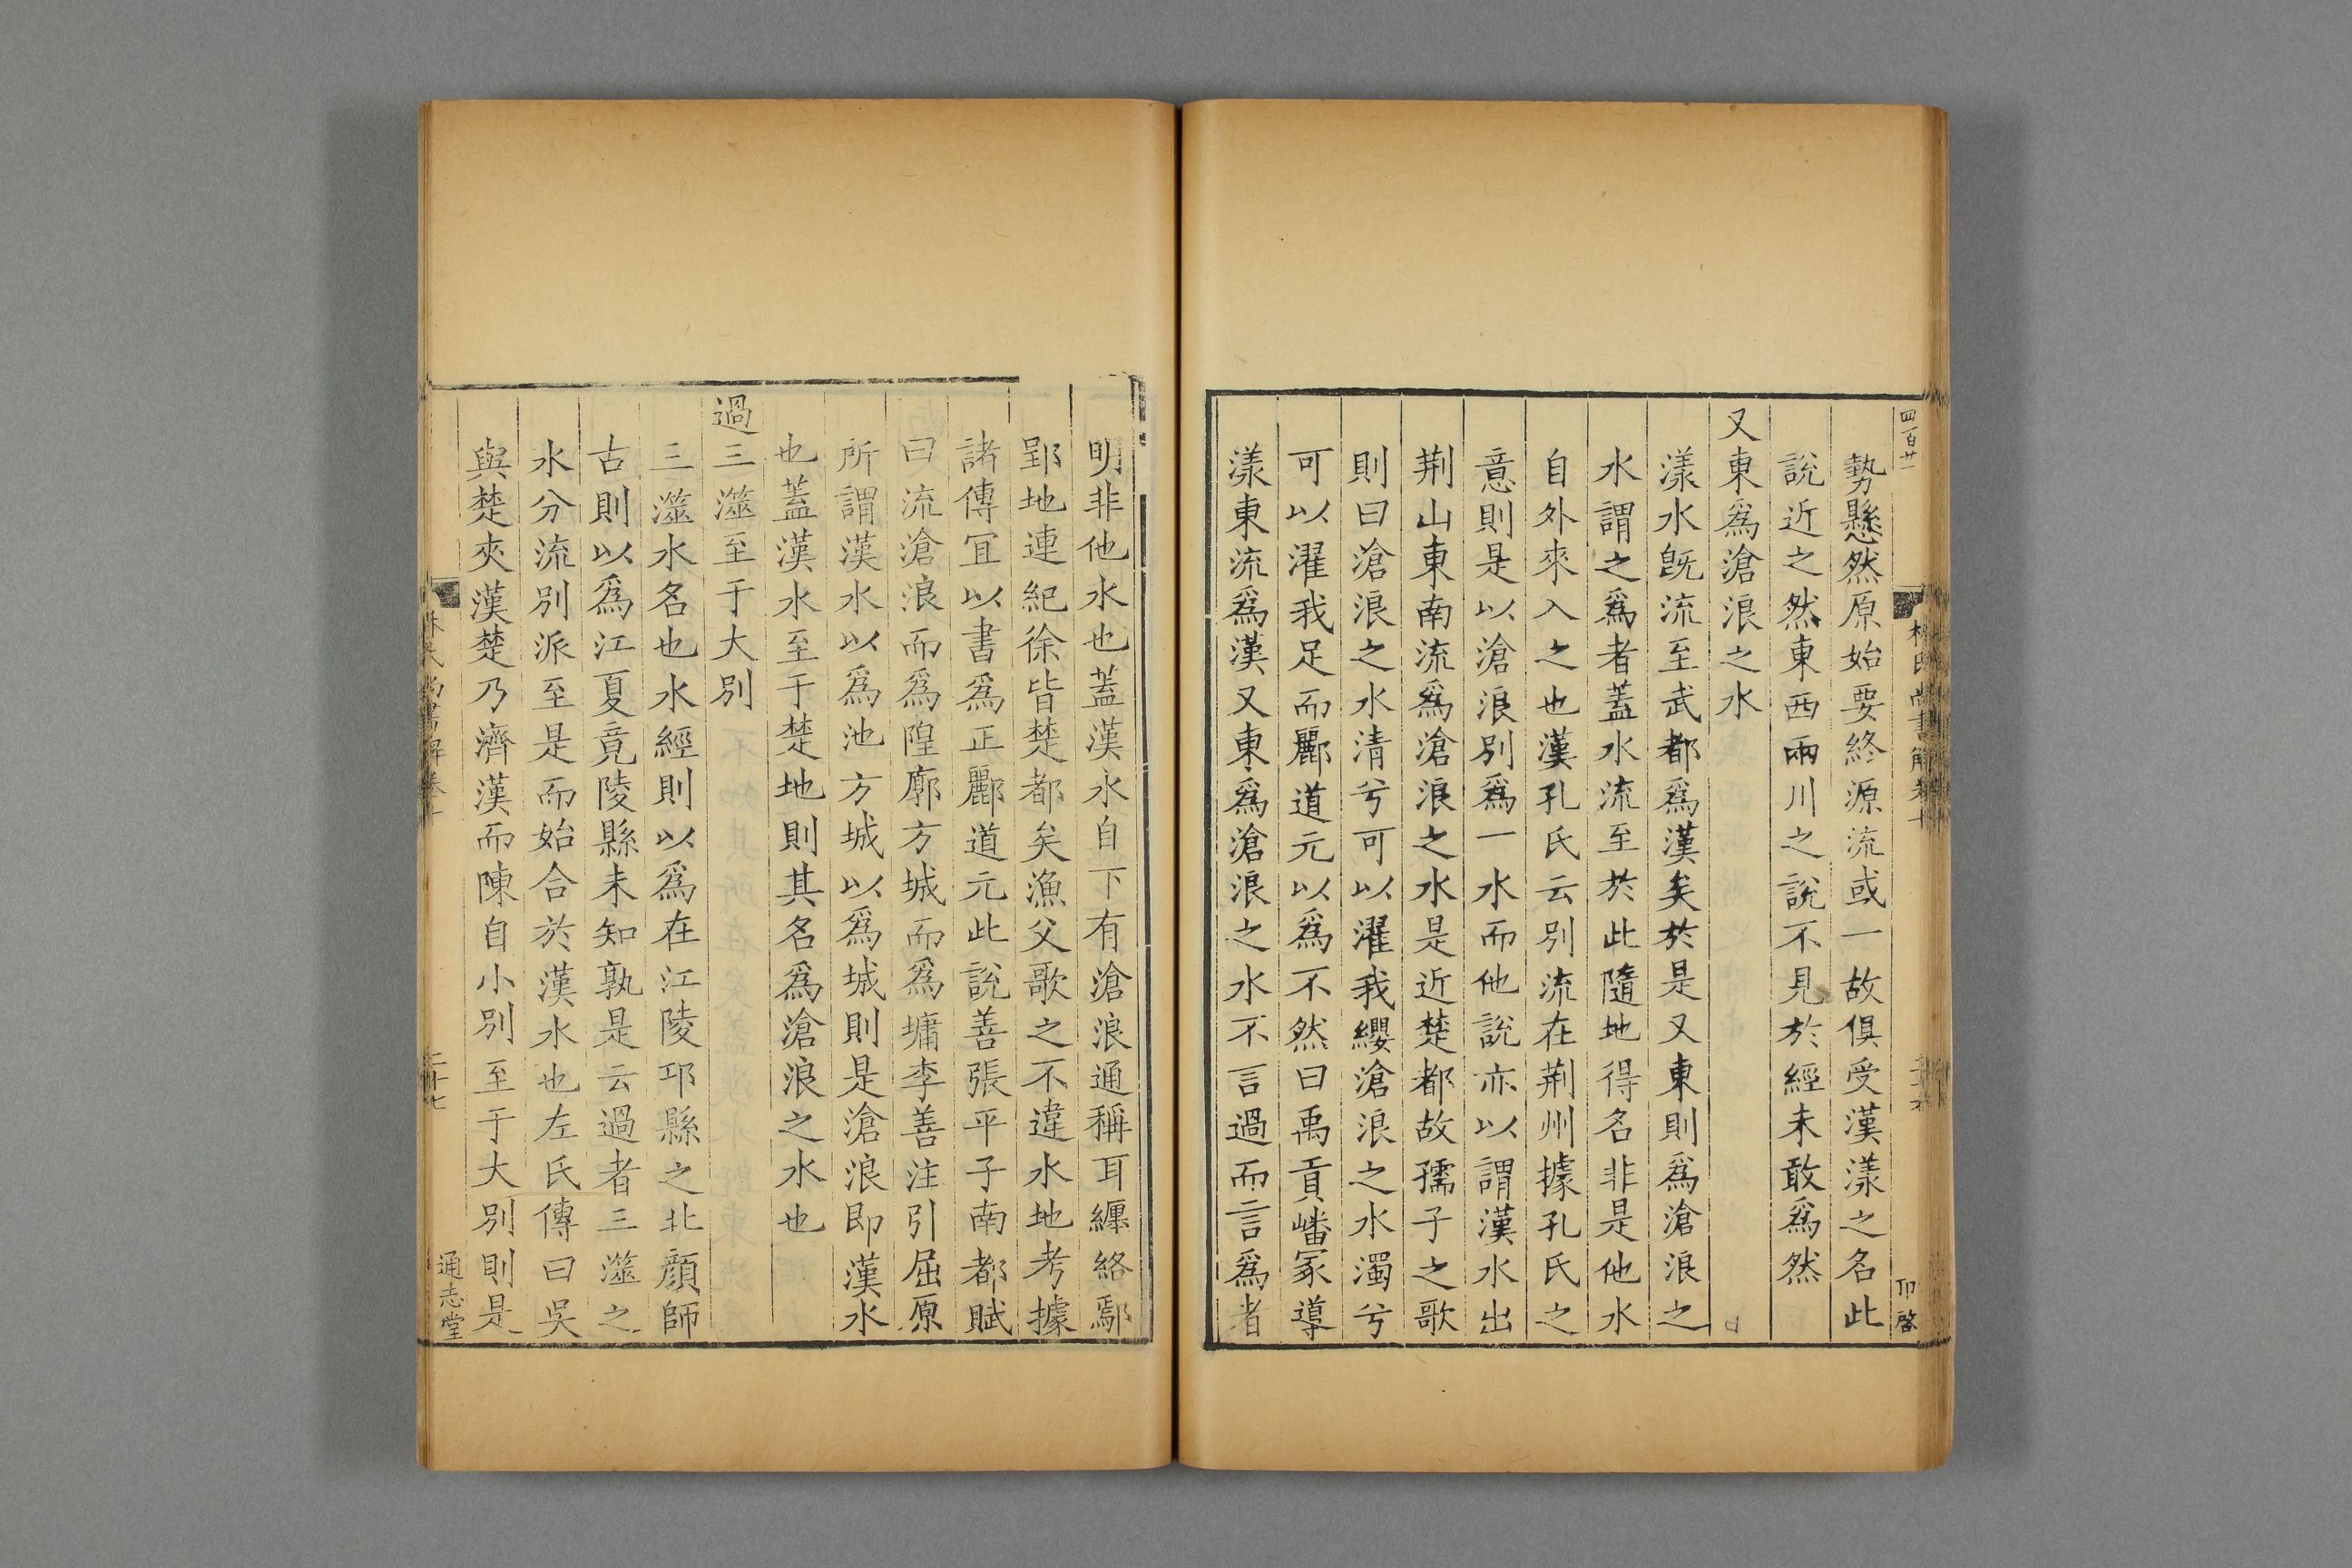 四百廿一
勢懸然原始要終源流或一故俱受漢漾之名此
說近之然東西兩川之說不見於經未敢爲然
又東爲滄浪之水
漾水旣流至武都爲漢矣於是又東則爲滄浪之
水謂之爲者蓋水流至於此隨地得名非是他水
自外來入之也漢孔氏云別流在荆州據孔氏之
意則是以滄浪別爲一水而他說亦以謂漢水出
荆山東南流爲滄浪之水是近楚都故孺子之歌
則曰滄浪之水清兮可以濯我纓滄浪之水濁兮
可以濯我足而酈道元以爲不然曰禹貢嶓冢導
漾東流爲漢又東爲滄浪之水不言過而言爲者
明非他水也蓋漢水自下有滄浪通稱耳纏絡鄢
郢地連紀徐皆楚都矣漁父歌之不違水地考據
諸傳宜以書爲正酈道元此說善張平子南都賦
曰流滄浪而爲隍廓方城而爲墉李善注引屈原
所謂漢水以爲池方城以爲城則是滄浪即漢水
也蓋漢水至于楚地則其名爲滄浪之水也
過三澨至于大別
三澨水名也水經則以爲在江陵邔縣之北顏師
古則以爲江夏竟陵縣未知孰是云過者三澨之
水分流別派至是而始合於漢水也左氏傳曰吳
與楚夾漢楚乃濟漢而陳自小別至于大別則是
林氏尚書解卷十
二十七
通志堂